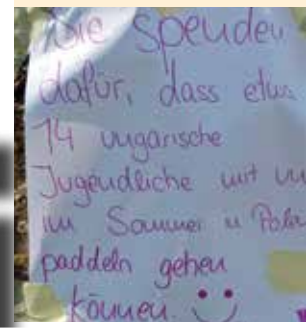 Die Spenden
dafür, dass etwa
14 ungarische
Jugendliche mit un
im Sommer n Polen
paddeln gehen
können. :)